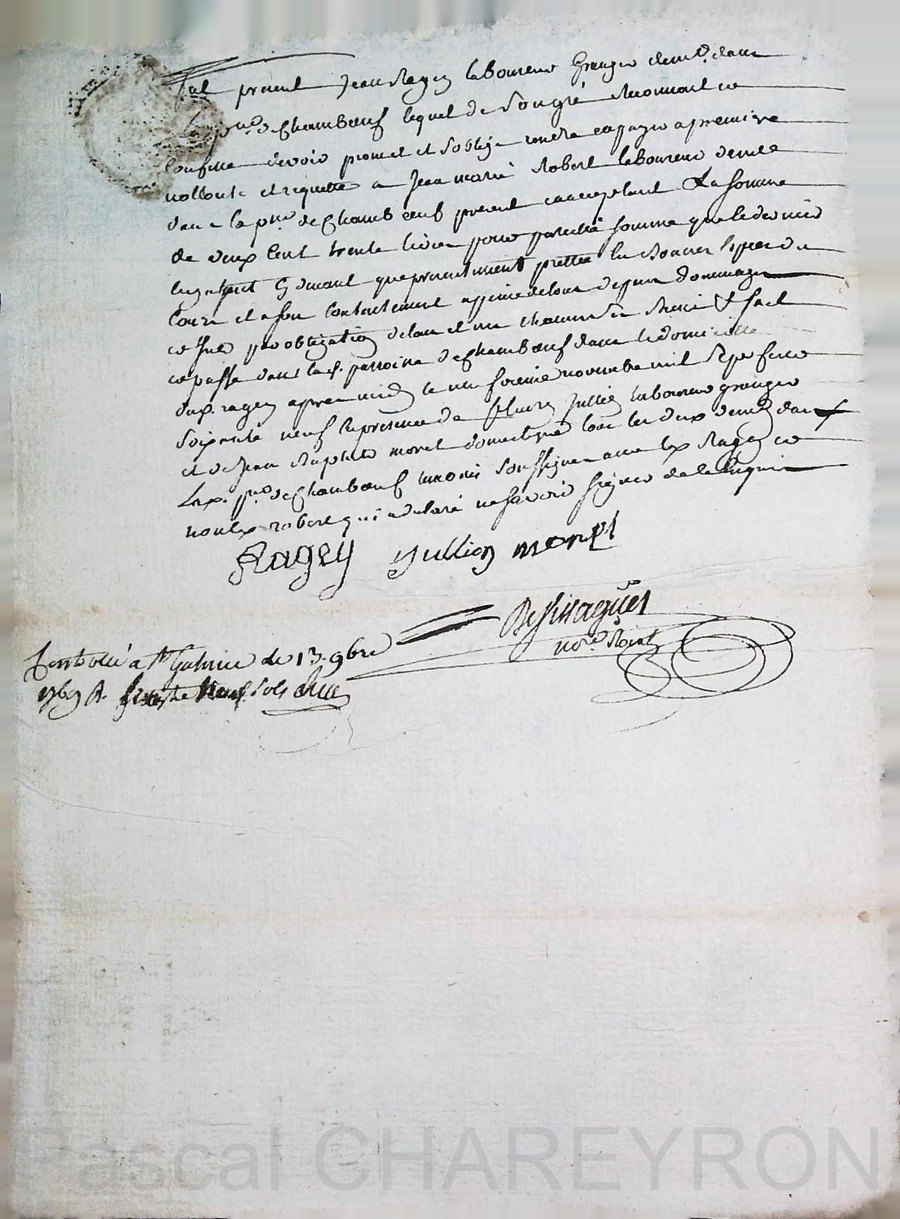 Fut présent Jean Ragey laboureur Granger demt. dans
la psse. de Chambœuf lequel de Son gré reconnait
confesse devoir promet et Soblige rendre et payer a premiere
vollonté et requette a Jean marie Robert laboureur demt.
dans la psse. de Chambœuf present et acceptant La Somme
de deux Cent trente livres pour pareille Somme que le dernier
que presentement prettée en Bonnes Especes du
Cours et a Son Contentement a peine de tous depens dommages
par obligation de tous et un chacuns Ses Biens & fait
et passé dans la paroisse de Chambœuf dans le domicille
dud. ragey apres midy le neufvieme novembre mil Sept Cent
Soixante neuf En presence de Jullien laboureur granger
et de Jean Baptiste morel domestique tous les deux demt. dans
psse. de Chambœuf temoins Soussignes avec led. Ragey et
non led. robert qui a declaré ne Savoir Signer de ce Enquis
Ragey Jullien morel
nore. Roial
Controllé a St. Galmier le 13. 9bre
1769 R. Sols
Pascal CHAREYRON